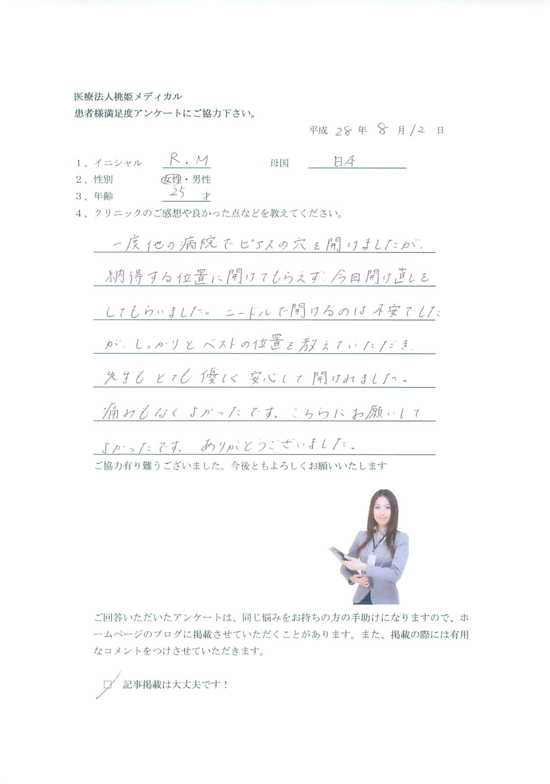 医療法人桃姫メディカル
患者様満足度アンケートにご協力下さい。
平成 28 年 8 月 12 日
1、イニシャル R.M 母国 日本
2、性別 女性・男性
3、年齢 25 才
4、クリニックのご感想や良かった点などを教えてください。
一度他の病院でピアスの穴を開けましたが、
納得する位置に開けてもらえず、今日開け直しを
してもらいました。ニードルで開けるのは不安でした
が、しっかりとベストの位置を教えていただき、
先生もとても優しく安心して開けれました。
痛みもなくよかったです。こちらにお願いして
よかったです。ありがとうございました。
ご協力有り難うございました。今後ともよろしくお願いいたします
ご回答いただいたアンケートは、同じ悩みをお持ちの方の手助けになりますので、ホ
ームページのブログに掲載させていただくことがあります。また、掲載の際には有用
なコメントをつけさせていただきます。
□ 記事掲載は大丈夫です！